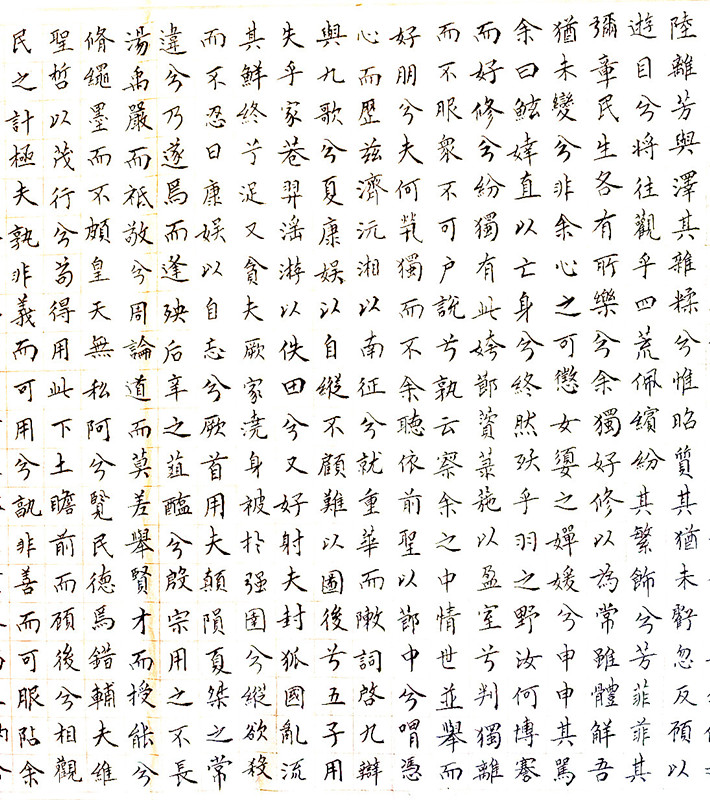 陸離芳與澤其雜糅兮惟昭質其猶未虧忽反顧以
遊目兮將往觀乎四荒佩繽紛其繁飾兮芳菲菲其
彌章民生各有所樂兮余獨好修以為常雖體解吾
猶未變兮非余心之可懲女嬃之嬋媛兮申申其罵
余曰鮌婞直以亡身兮終然殀乎羽之野汝何博謇
而好修兮紛獨有此姱節薋菉葹以盈室兮判獨離
而不服眾不可戶說兮孰云察余之中情世並舉而
好朋兮夫何煢獨而不余聽依前聖以節中兮喟憑
心而歷茲濟沅湘以南征兮就重華而敶詞啓九辯
與九歌兮夏康娛以自縱不顧難以圖後兮五子用
失乎家巷羿淫游以佚田兮又好射夫封狐國亂流
其鮮終兮浞又貪夫厥家澆身被於强圉兮縱欲殺
而不忍日康娛以自忘兮厥首用夫顛隕夏桀之常
違兮乃遂焉而逢殃后辛之菹醢兮殷宗用之不長
湯禹嚴而祗敬兮周論道而莫差舉賢才而授能兮
脩繩墨而不頗皇天無私阿兮覽民德焉錯輔夫維
聖哲以茂行兮苟得用此下土瞻前而顧後兮相觀
民之計極夫孰非義而可用兮孰非善而可服阽余